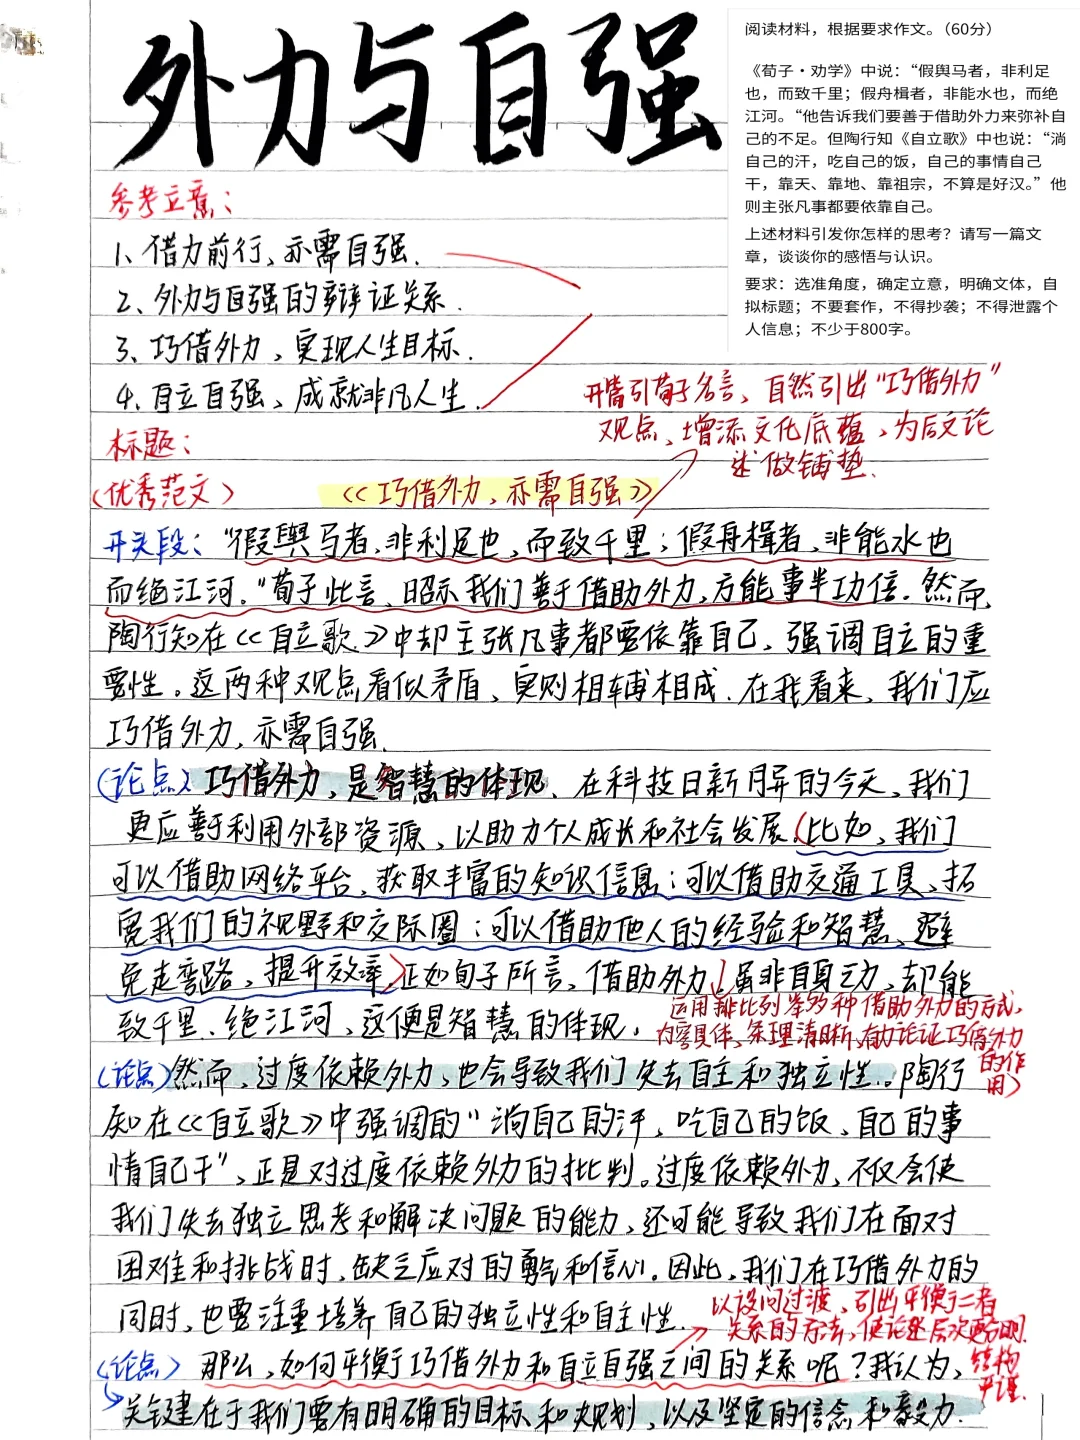 外力与自强
阅读材料，根据要求作文。（60分）
《荀子·劝学》中说：“假舆马者，非利足
也，而致千里；假舟楫者，非能水也，而绝
江河。“他告诉我们要善于借助外力来弥补自
己的不足。但陶行知《自立歌》中也说：“淌
自己的汗，吃自己的饭，自己的事情自己
干，靠天、靠地、靠祖宗，不算是好汉。”他
则主张凡事都要依靠自己。
上述材料引发你怎样的思考？请写一篇文
章，谈谈你的感悟与认识。
要求：选准角度，确定立意，明确文体，自
拟标题；不要套作，不得抄袭；不得泄露个
人信息；不少于800字。
参考立意：
1、借力前行，亦需自强．
2、外力与自强的辩证关系．
3、巧借外力，实现人生目标．
4、自立自强，成就非凡人生．
开篇引荀子名言，自然引出“巧借外力”
观点，增添文化底蕴，为后文论
述做铺垫．
标题：
（优秀范文）《巧借外力，亦需自强》
开头段：“假舆马者，非利足也，而致千里；假舟楫者，非能水也
而绝江河．“荀子此言，昭示我们善于借助外力，方能事半功倍．然而，
陶行知在《自立歌．》中却主张凡事都要依靠自己，强调自立的重
要性。这两种观点看似矛盾，实则相辅相成．在我看来，我们应
巧借外力，亦需自强．
（论点）巧借外力，是智慧的体现．在科技日新月异的今天，我们
更应善于利用外部资源，以助力个人成长和社会发展（比如，我们
可以借助网络平台，获取丰富的知识信息；可以借助交通工具，拓
宽我们的视野和交际圈；可以借助他人的经验和智慧，避
免走弯路，提升效率）正如旬子所言，借助外力，虽非自身之力，却能
致千里、绝江河，这便是智慧的体现．
运用排比列举多种借助外力的方式，
内容具体，条理清晰，有力论证巧借外力
的作
用）
（论点）然而，过度依赖外力，也会导致我们失去自主和独立性。陶行
知在《自立歌》中强调的“淌自己的汗，吃自己的饭，自己的事
情自己干”，正是对过度依赖外力的批判。过度依赖外力，不仅会使
我们失去独立思考和解决问题的能力，还可能导致我们在面对
困难和挑战时，缺乏应对的勇气和信心。因此，我们在巧借外力的
同时，也要注重培养自己的独立性和自主性．
以设问过渡，引出平衡二者
关系的方法，使论述层次更分明．
结构
严谨．
（论点）那么，如何平衡巧借外力和自立自强之间的关系呢？我认为，
关键在于我们要有明确的目标和规划，以及坚定的信念和毅力．